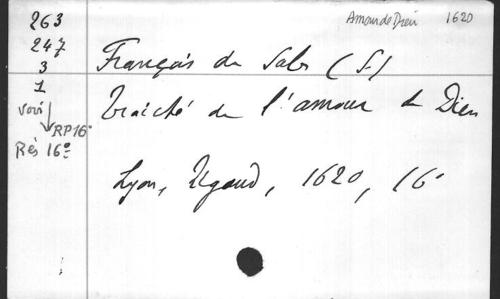 263
247
3
1
RP16°
Rés 16°
Amour de Dieu 1620
François de Sales (S.)
Traicté de l'amour de Dieu
Lyon, Rigaud, 1620, 16°